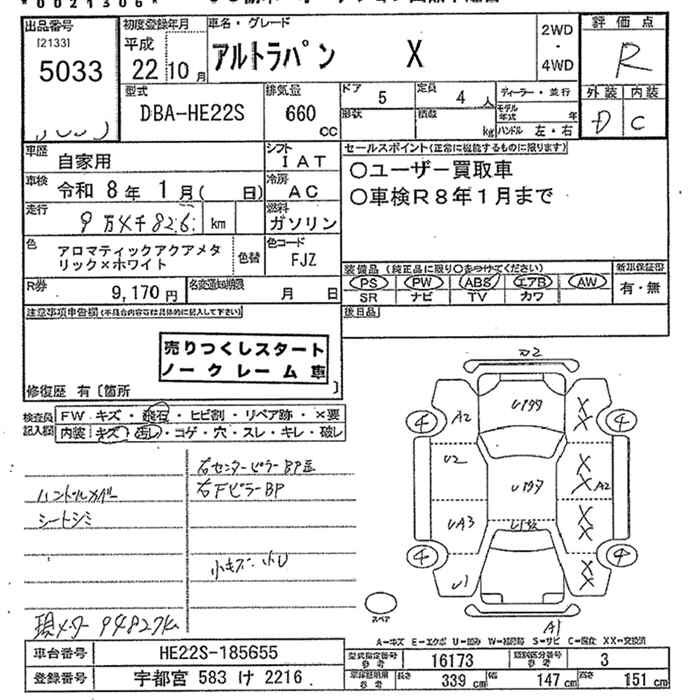 *0021306*
出品番号
[2133]
5033
初度登録年月
平成
22年10月
車名・グレード
アルトラパン X
2WD
・
4WD
評価点
R
外装 内装
D C
型式
DBA-HE22S
排気量
660
CC
ドア
5
定員
4人
形状
積載
kg
ディーラー・並行
モデル年式 年
ハンドル 左・右
車歴
自家用
シフト
IAT
車検
令和 8年 1月( 日)
冷房
AC
走行
km
燃料
ガソリン
色
アロマティックアクアメタ
リック×ホワイト
色替
色コード
FJZ
R券
9,170円
名変期限
月 日
セールスポイント(正常に機能するものに限ります)
○ユーザー買取車
○車検R8年1月まで
装備品(純正品に限り○をつけてください)
PS PW ABS エアB AW
SR ナビ TV カワ
新車保証書
有・無
後日品
注意事項申告欄(不具合内容等は具体的に記入して下さい)
売りつくしスタート
ノークレーム車
修復歴 有〔箇所 〕
検査員
記入欄
FW キズ・飛石・ヒビ割・リペア跡・×要
内装 キズ・汚レ・コゲ・穴・スレ・キレ・破レ
右センターピラーBP
右FピラーBP
シートシミ
小キズ・小U
現メーター 94827km
A2
U2
UA3
U1
U199
U197
X
X
X
X
A2
X
X
X
X
4
4
4
4
A1
スペア
A=キズ E=エクボ U=凹み W=補修跡 S=サビ C=腐食 XX=交換済
車台番号
HE22S-185655
登録番号
宇都宮 583 け 2216
型式指定番号
参考
16173
類別区分番号
参考
3
車検証明用
参考
長さ
339 cm
幅
147 cm
高さ
151 cm